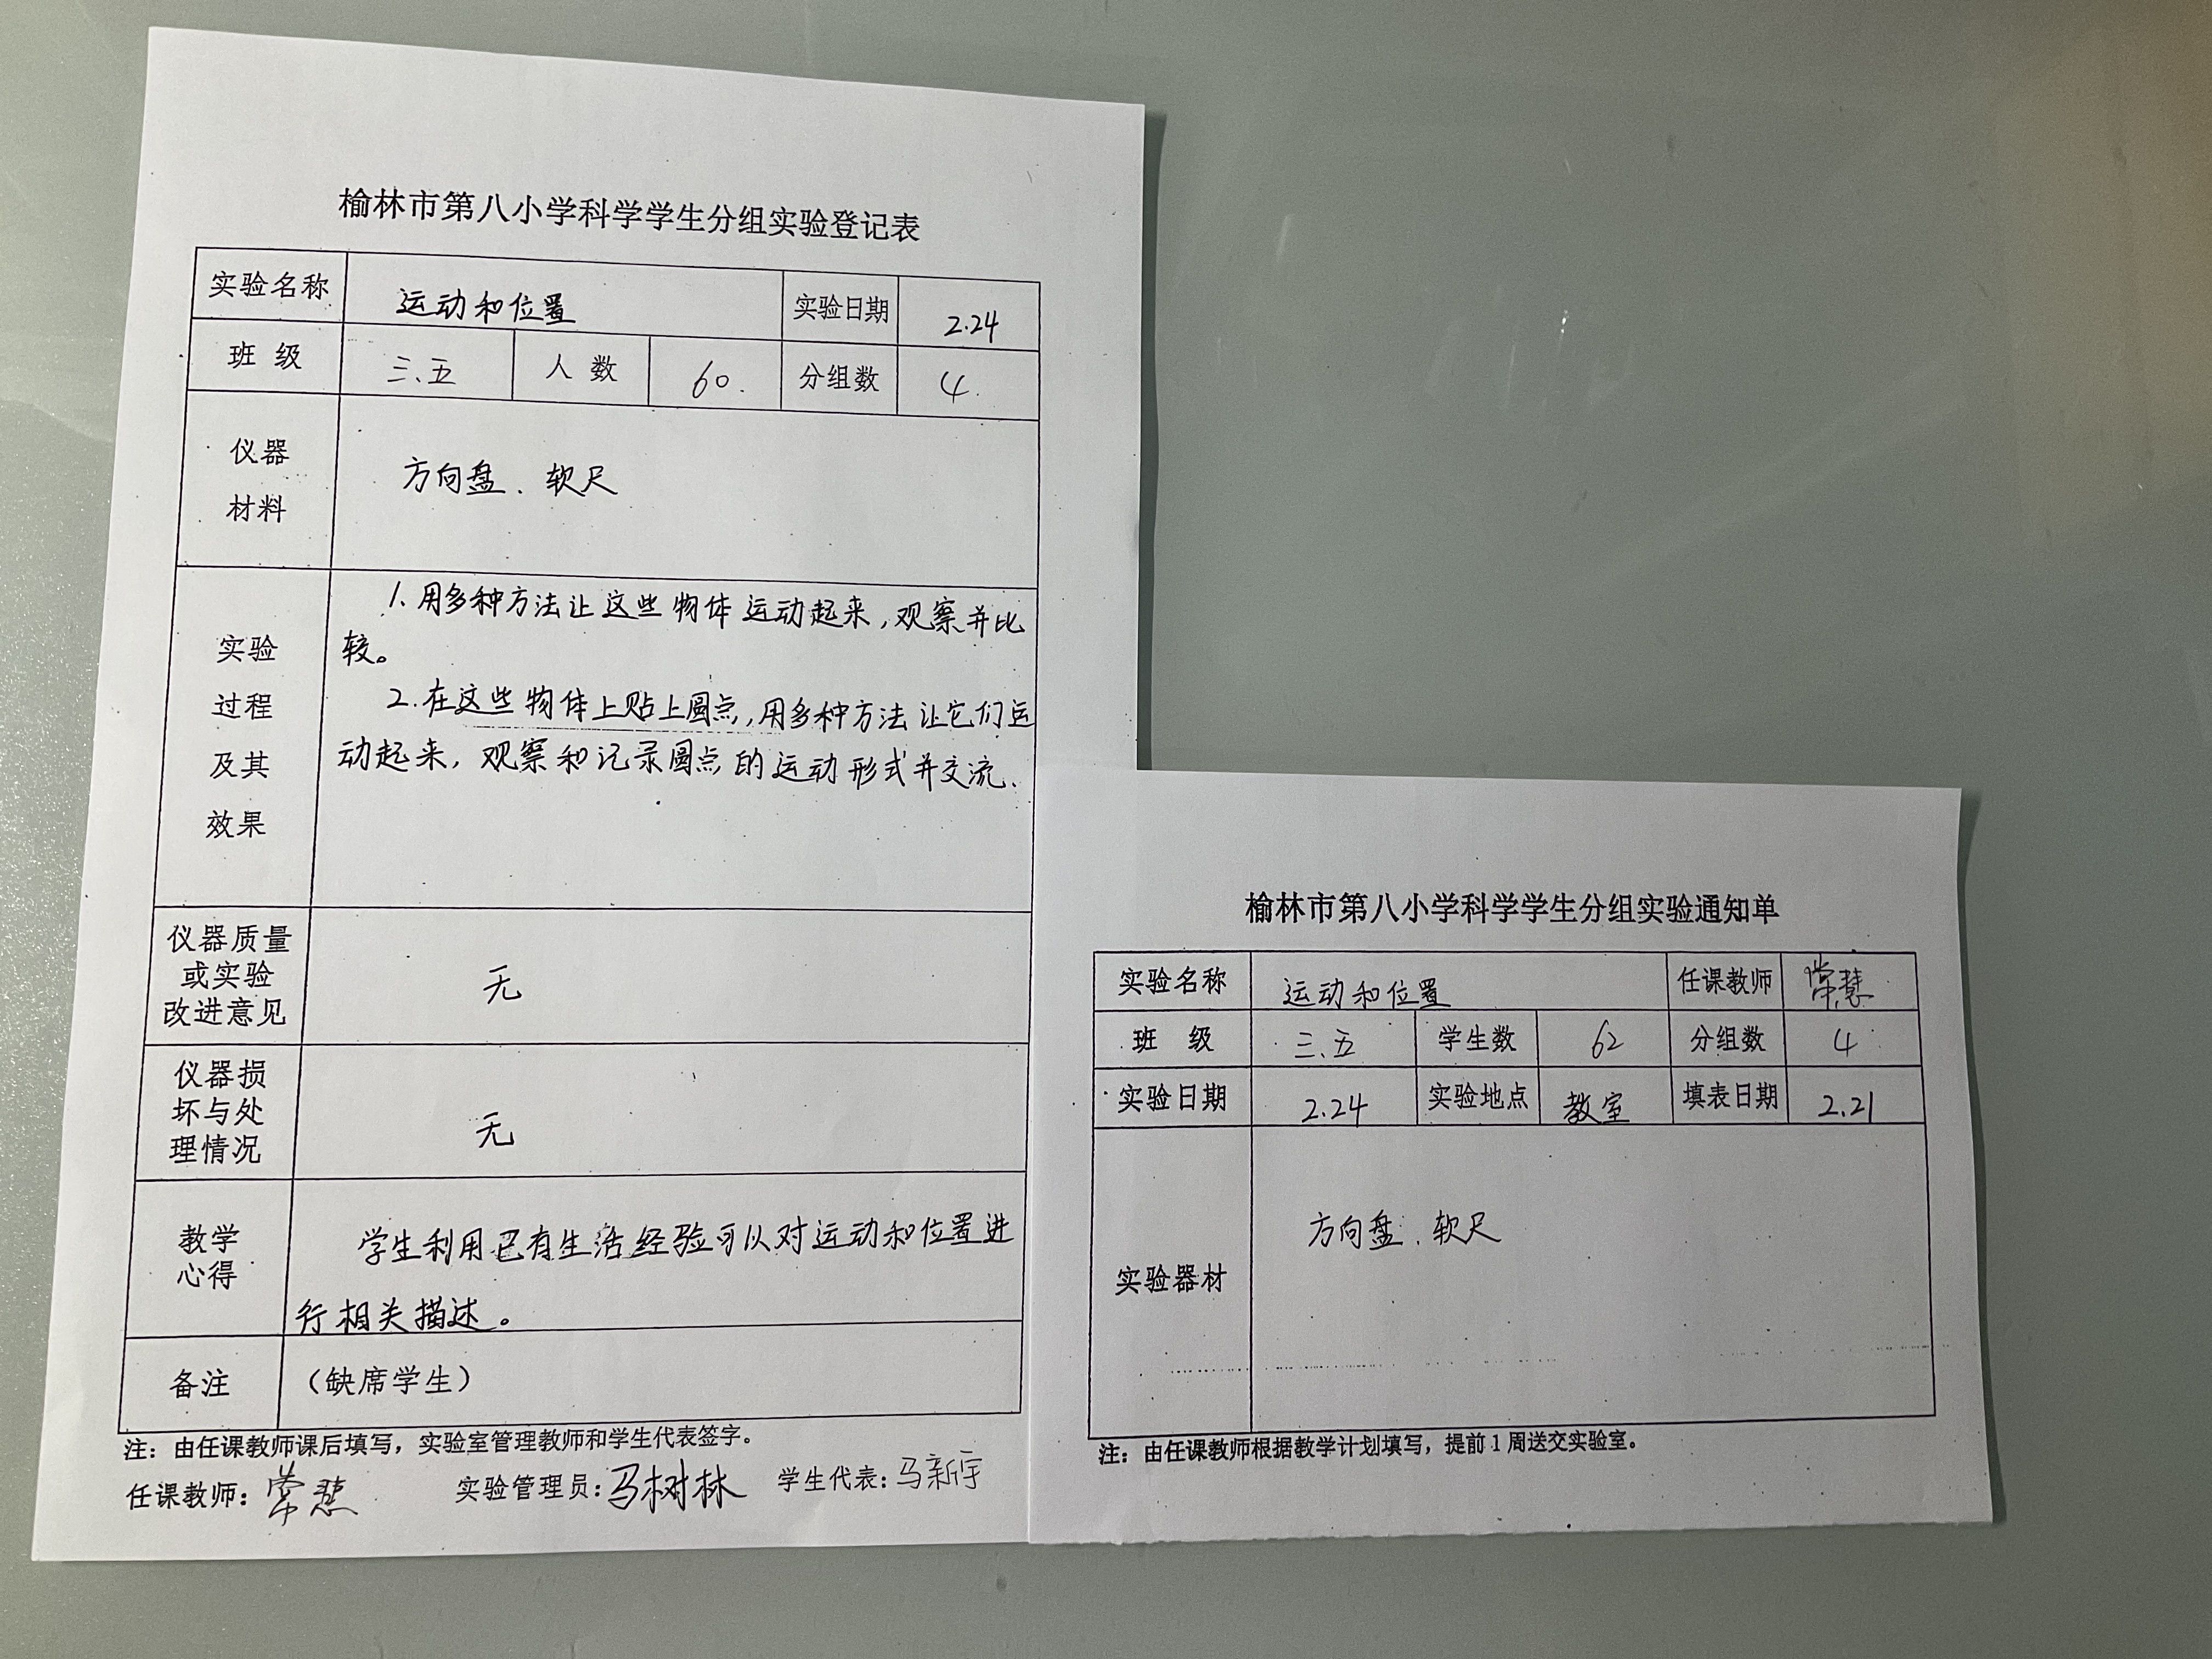 榆林市第八小学科学学生分组实验登记表
实验名称 运动和位置 实验日期 2.24
班 级 三、五 人 数 60. 分组数 4.
仪器
材料
方向盘、软尺
实验
过程
及其
效果
1、用多种方法让这些物体运动起来,观察并比
较。
2.在这些物体上贴上圆点,用多种方法让它们运
动起来,观察和记录圆点的运动形式并交流.
仪器质量
或实验
改进意见
无
仪器损
坏与处
理情况
无
教学
心得
学生利用已有生活经验可以对运动和位置进
行相关描述。
备注 （缺席学生）
注：由任课教师课后填写，实验室管理教师和学生代表签字。
任课教师：常慧 实验管理员：马树林 学生代表：马新宇
榆林市第八小学科学学生分组实验通知单
实验名称 运动和位置 任课教师 常慧
班 级 三、五 学生数 62 分组数 4
实验日期 2.24 实验地点 教室 填表日期 2.21
实验器材
方向盘、软尺
注：由任课教师根据教学计划填写，提前1周送交实验室。